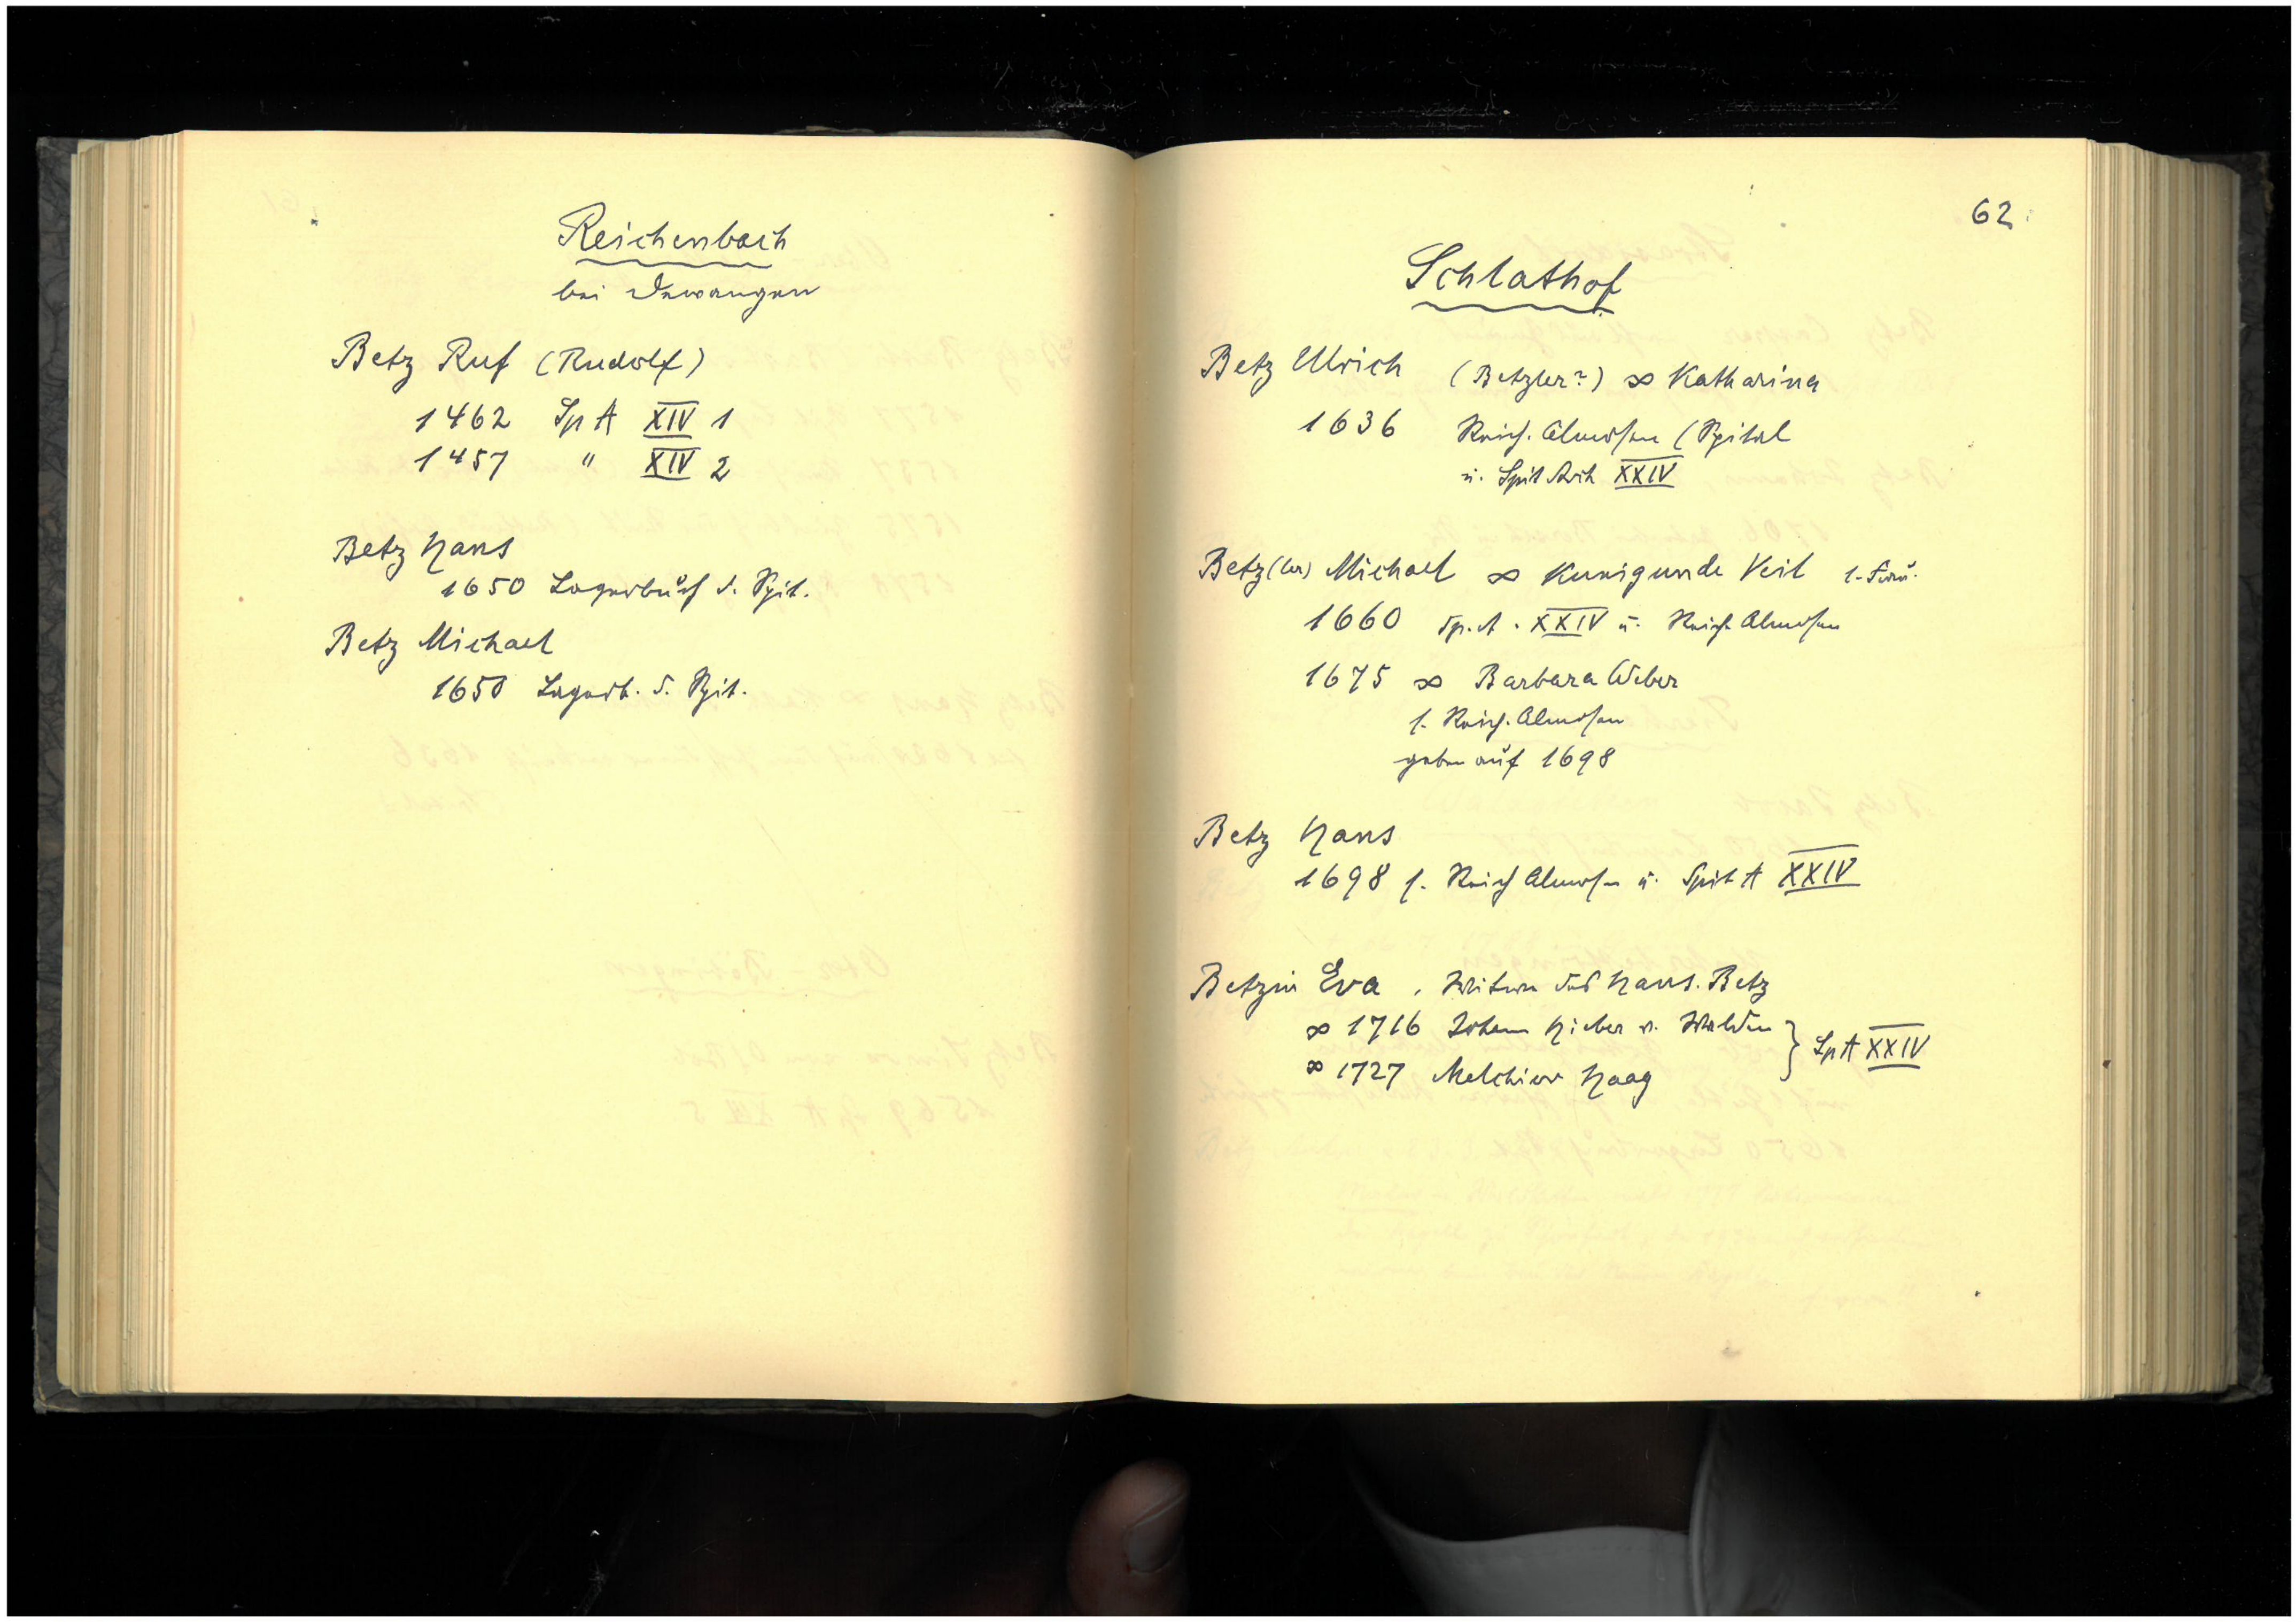 Reichenbach
bei Dewangen
Betz Ruf (Rudolf)
1462 Sp A XIV 1
1457 " XIV 2
Betz Hans
1650 Lagerbuch d. Spit.
Betz Michael
1650 Lagerb. d. Spit.
62
Schlathof
Betz Ulrich (Betzler?) ∞ Katharina
1636 Reich. Almosen (Spital
u. Spit Arch XXIV
Betz(ler) Michael ∞ Kunigunde Veit 1. Frau.
1660 Sp. A. XXIV u. Reich. Almosen
1675 ∞ Barbara Weber
s. Reich. Almosen
geben auf 1698
Betz Hans
1698 s. Reich Almosen u. Spit A XXIV
Betzin Eva, Witwe des Hans. Betz
∞ 1716 Johann Hieber v.
∞ 1727 Melchior Haag } Sp A XXIV